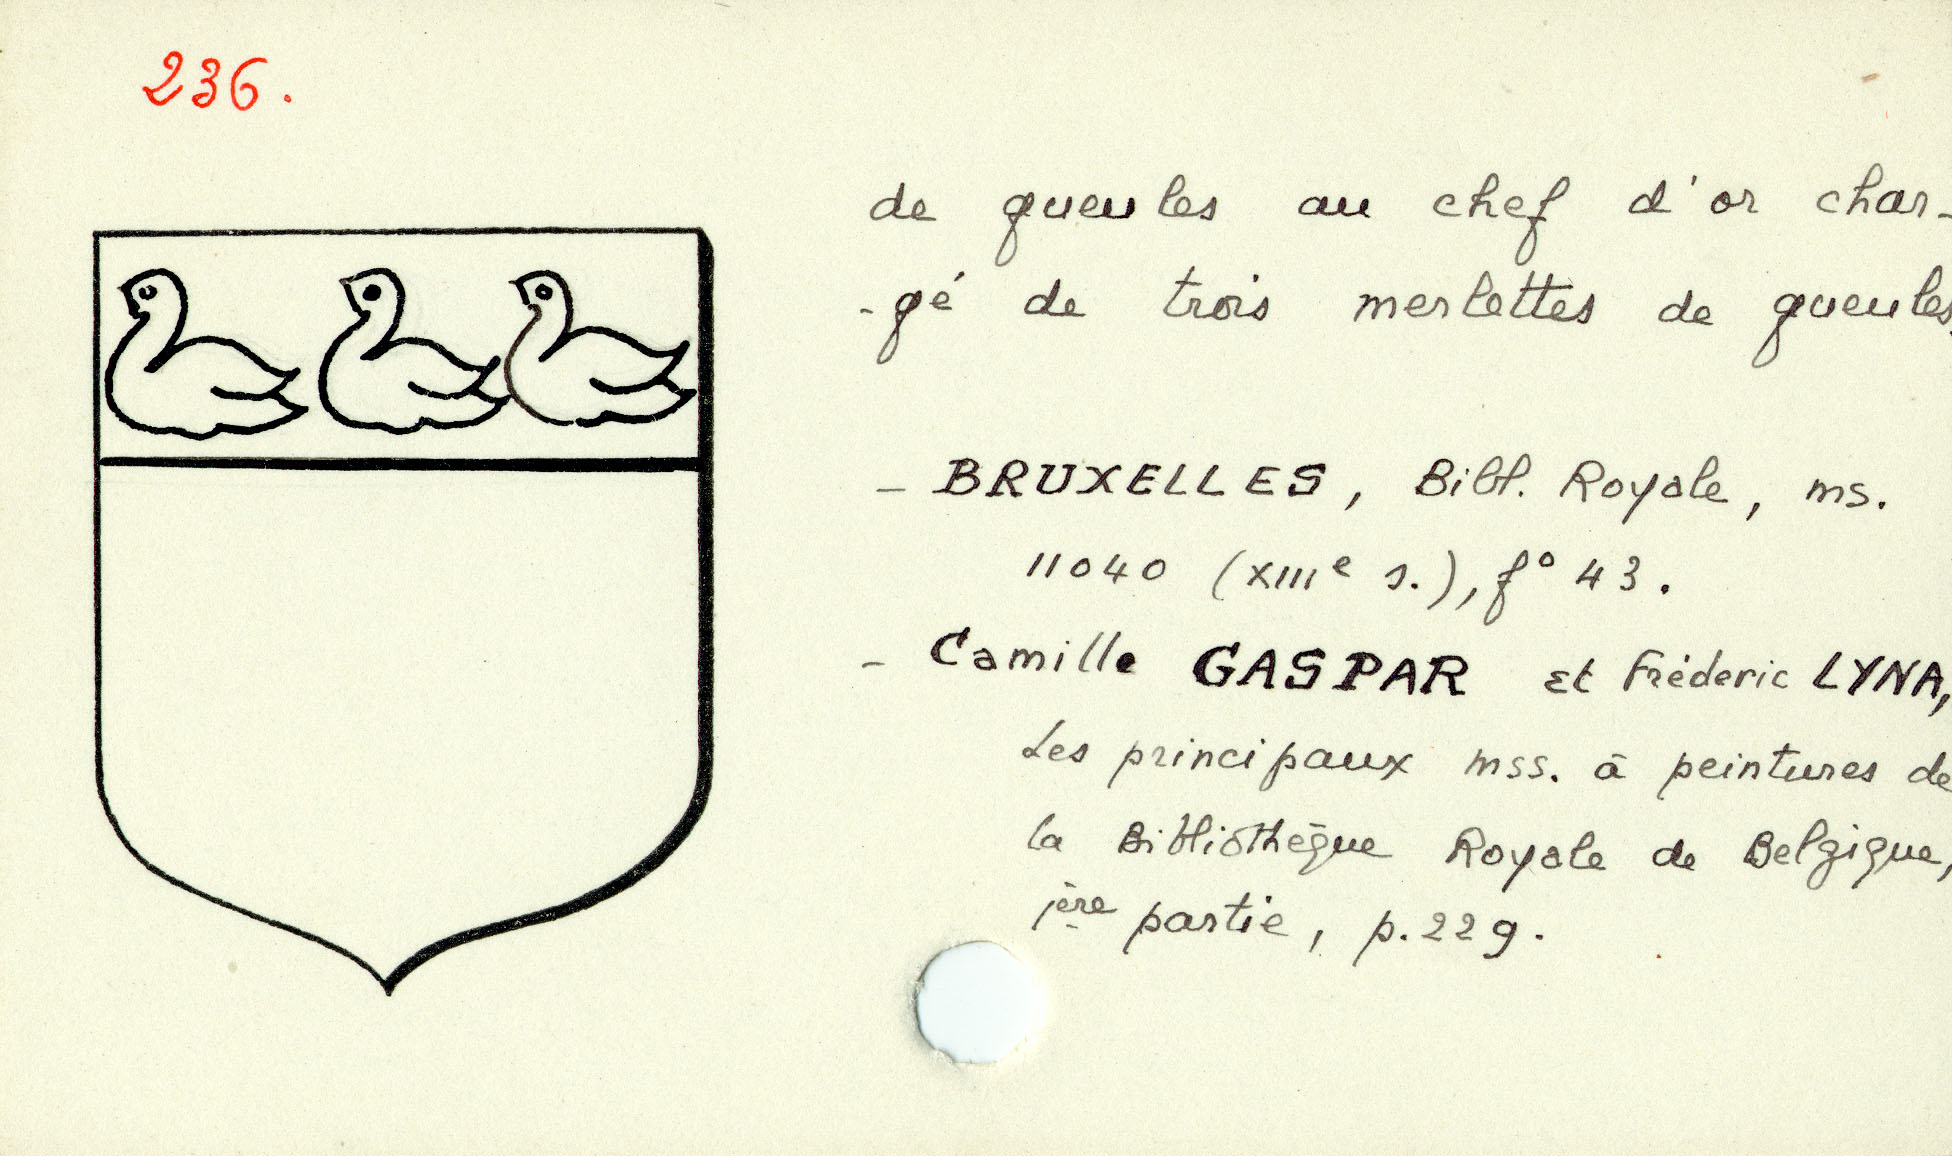 236.
de gueules au chef d'or char-
-gé de trois merlettes de gueules.
- BRUXELLES, Bibl. Royale, ms.
11040 (XIIIe s.), fº 43.
- Camille GASPAR et Fréderic LYNA,
Les principaux mss. à peintures de
la Bibliothèque Royale de Belgique,
1ère partie, p. 229.